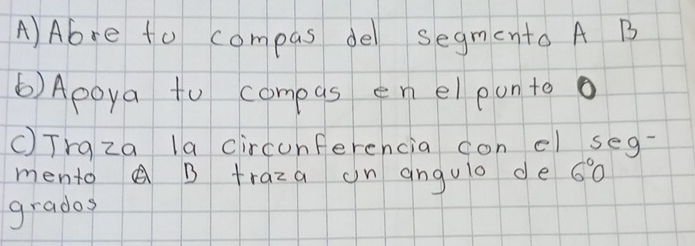 A) Abre tu compas del segmento A B
b) Apoya tu compas en el punto O
c) Traza la circunferencia con el seg-
mento A B traza un angulo de 60
grados